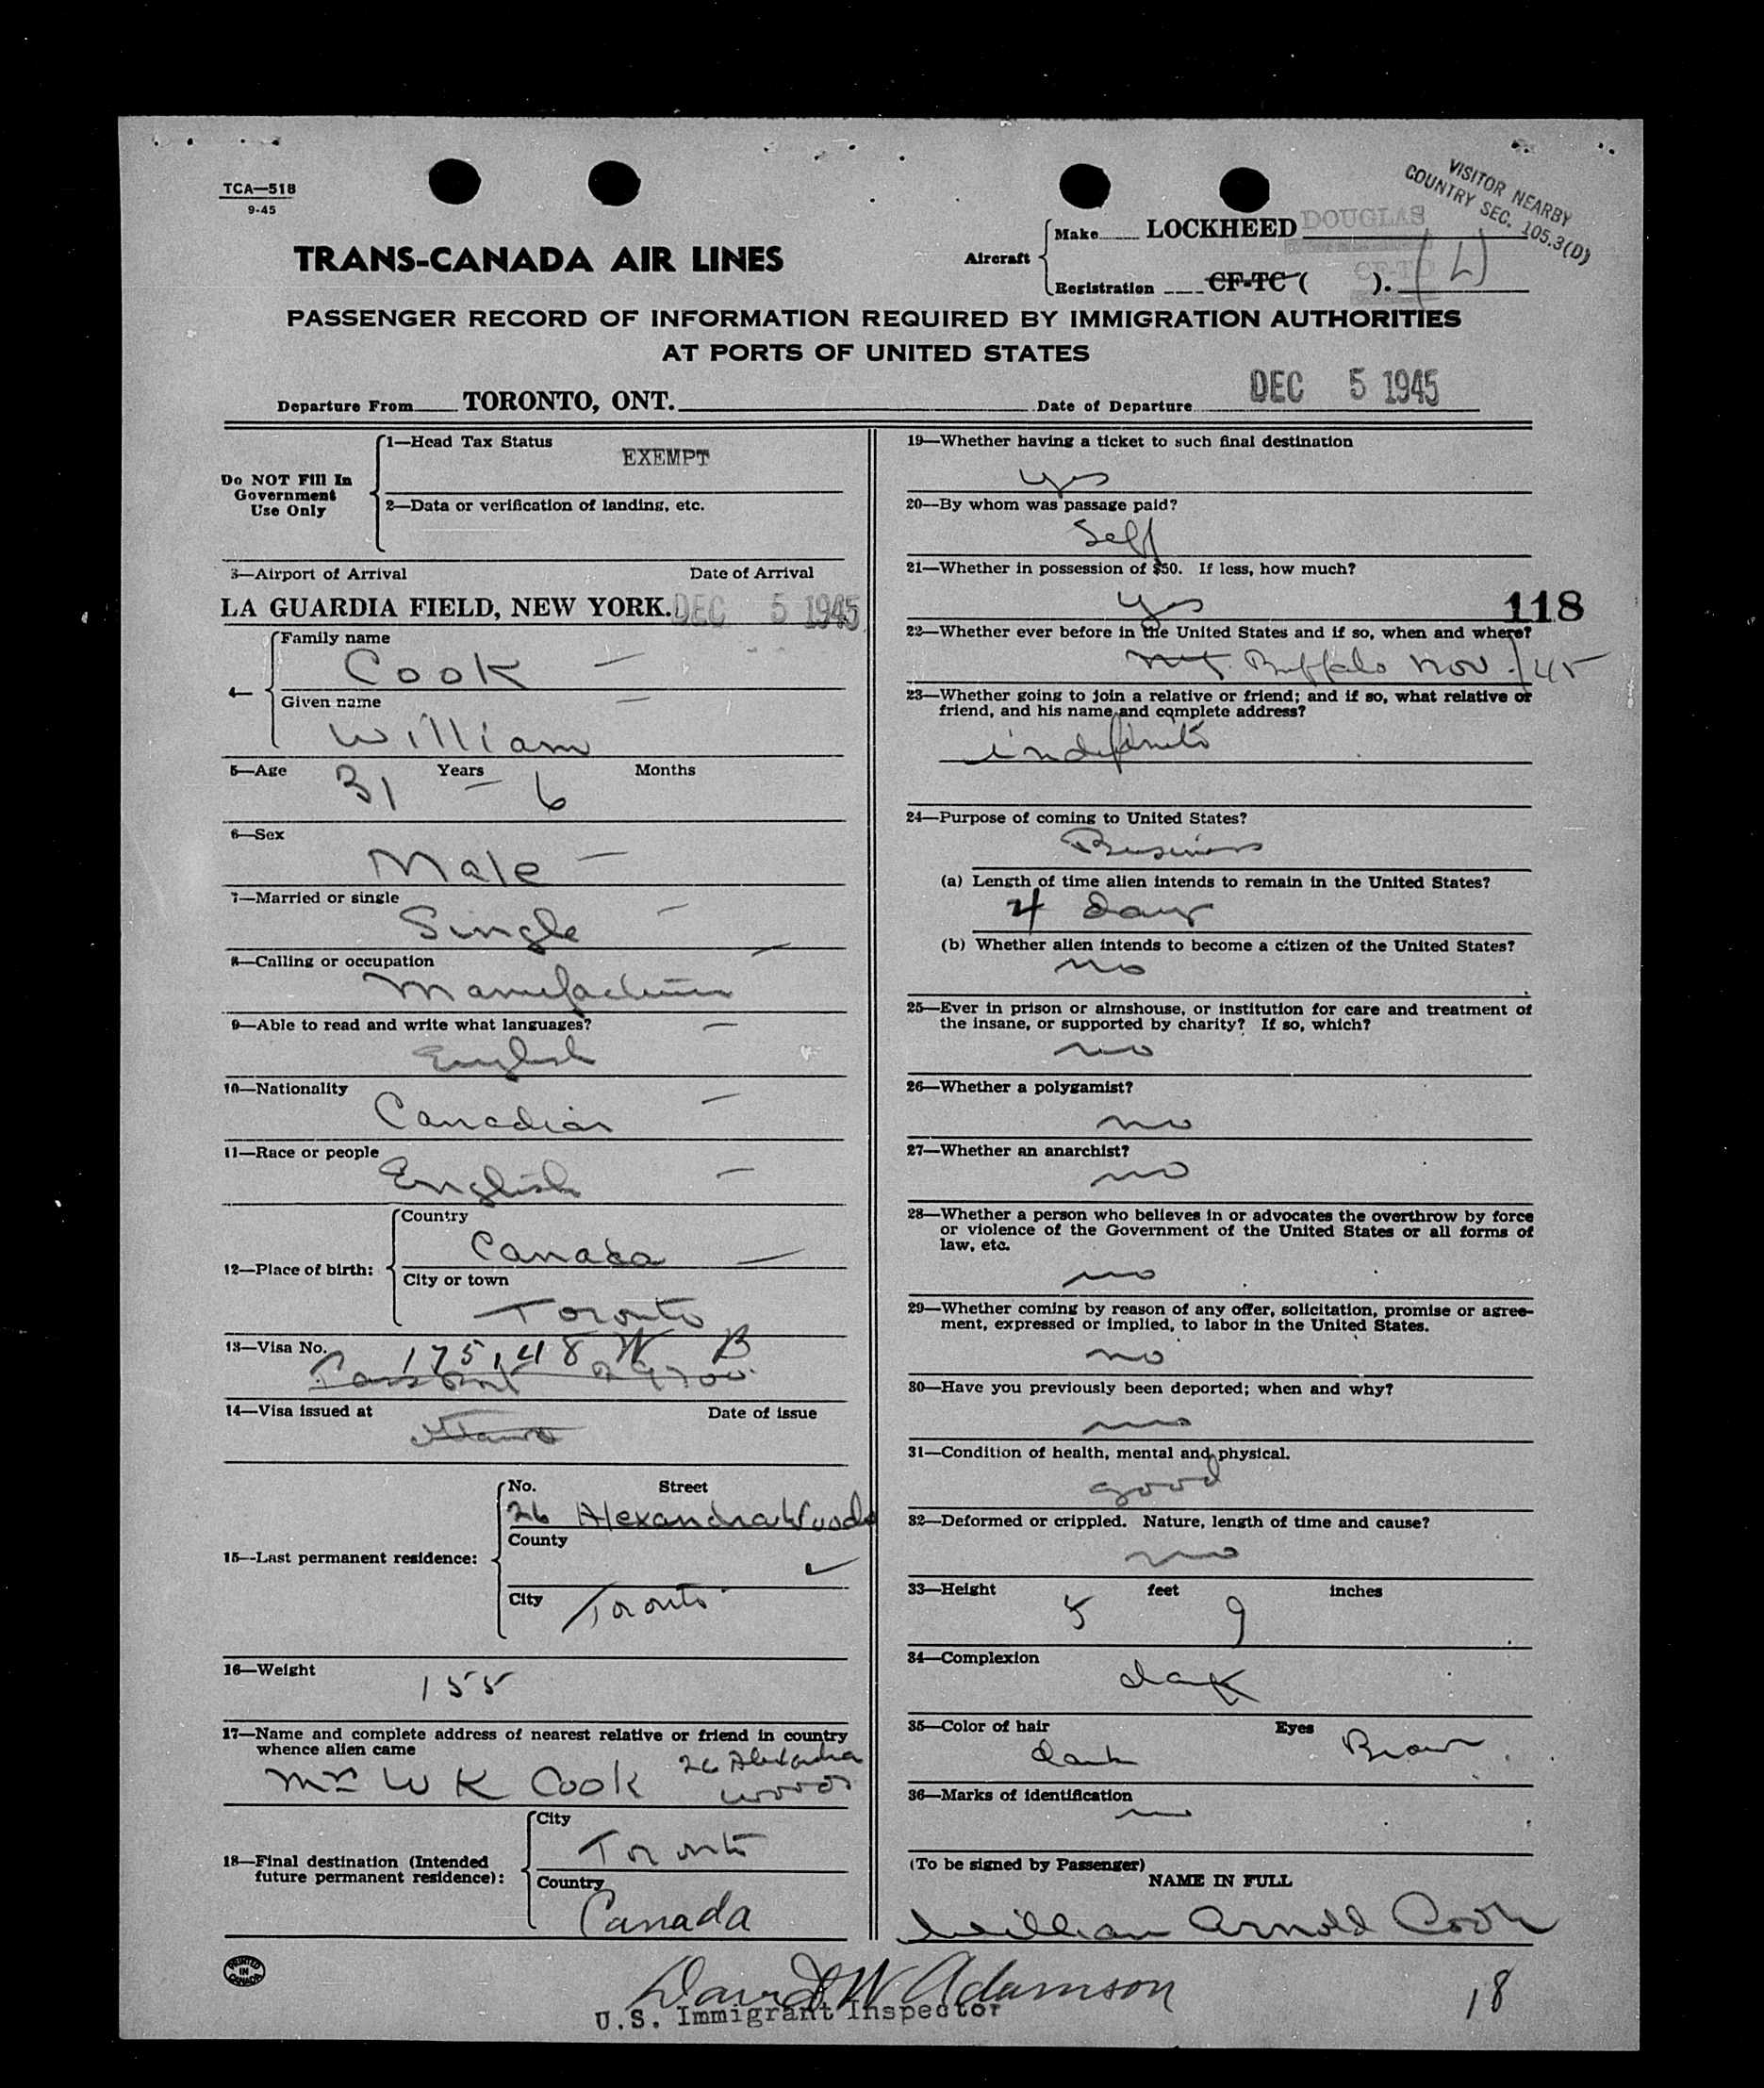 TCA—518
9-45
VISITOR NEARBY
COUNTRY SEC. 105.3(D)
TRANS-CANADA AIR LINES
Aircraft
Make LOCKHEED DOUGLAS
Registration CF-TC ( ). CF-TC (L)
PASSENGER RECORD OF INFORMATION REQUIRED BY IMMIGRATION AUTHORITIES
AT PORTS OF UNITED STATES
Departure From TORONTO, ONT. Date of Departure DEC 5 1945
Do NOT Fill In
Government
Use Only
1—Head Tax Status
EXEMPT
2—Data or verification of landing, etc.
3—Airport of Arrival Date of Arrival
LA GUARDIA FIELD, NEW YORK. DEC 5 1945
4—
Family name
Cook —
Given name
William
5—Age 31 Years — 6 Months
6—Sex
Male —
7—Married or single
Single —
8—Calling or occupation
Manufacturer
9—Able to read and write what languages?
English
10—Nationality
Canadian —
11—Race or people
English —
12—Place of birth:
Country
Canada —
City or town
Toronto
13—Visa No. 175,48 W B
Passport 29700
14—Visa issued at Date of issue
Ottawa
15—Last permanent residence:
No. Street
26 Alexandra Woods
County
City Toronto
16—Weight
155
17—Name and complete address of nearest relative or friend in country
whence alien came
Mrs W K Cook 26 Alexandra
Woods
18—Final destination (Intended
future permanent residence):
City
Toronto
Country
Canada
19—Whether having a ticket to such final destination
yes
20—By whom was passage paid?
Self
21—Whether in possession of $50. If less, how much?
yes 118
22—Whether ever before in the United States and if so, when and where?
N.Y. Buffalo Nov./45
23—Whether going to join a relative or friend; and if so, what relative or
friend, and his name and complete address?
indefinite
24—Purpose of coming to United States?
Business
(a) Length of time alien intends to remain in the United States?
4 days
(b) Whether alien intends to become a citizen of the United States?
no
25—Ever in prison or almshouse, or institution for care and treatment of
the insane, or supported by charity? If so, which?
no
26—Whether a polygamist?
no
27—Whether an anarchist?
no
28—Whether a person who believes in or advocates the overthrow by force
or violence of the Government of the United States or all forms of
law, etc.
no
29—Whether coming by reason of any offer, solicitation, promise or agree-
ment, expressed or implied, to labor in the United States.
no
30—Have you previously been deported; when and why?
no
31—Condition of health, mental and physical.
good
32—Deformed or crippled. Nature, length of time and cause?
no
33—Height 5 feet 9 inches
34—Complexion
dark
35—Color of hair Eyes
dark Brown
36—Marks of identification
no
(To be signed by Passenger)
NAME IN FULL
William Arnold Cook
PRINTED
IN
CANADA
David W Adamson
U.S. Immigrant Inspector
18